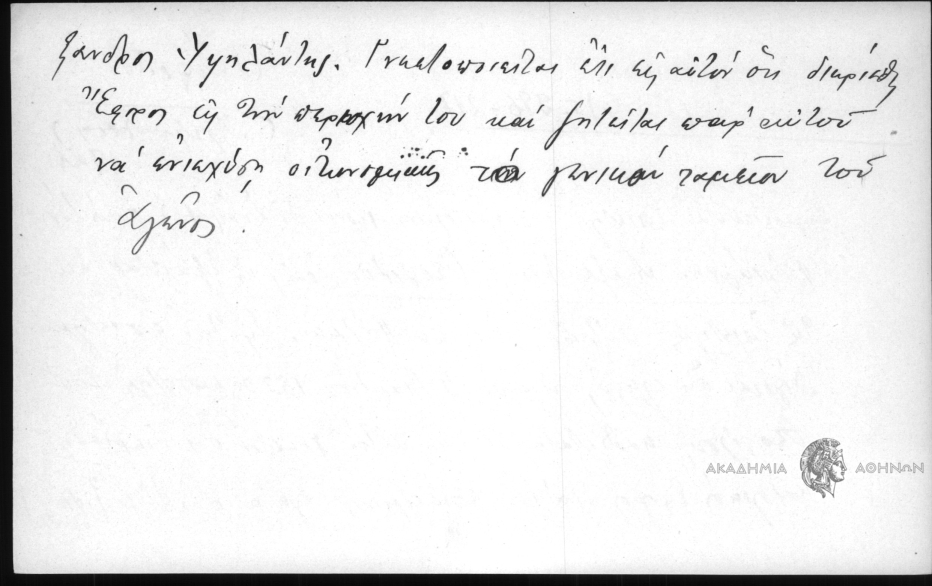 ξανδρος Ὑψηλάντης. Γνωστοποιεῖται ἔτι εἰς αὐτόν ὅτι διωρίσθη
Ἔφορος εἰς τήν περιοχήν του καί ζητεῖται παρ' αὐτοῦ
νά ἐνισχύσῃ οἰκονομικῶς τό γενικόν ταμεῖον τοῦ
ἀγῶνος.
ΑΚΑΔΗΜΙΑ ΑΘΗΝΩΝ